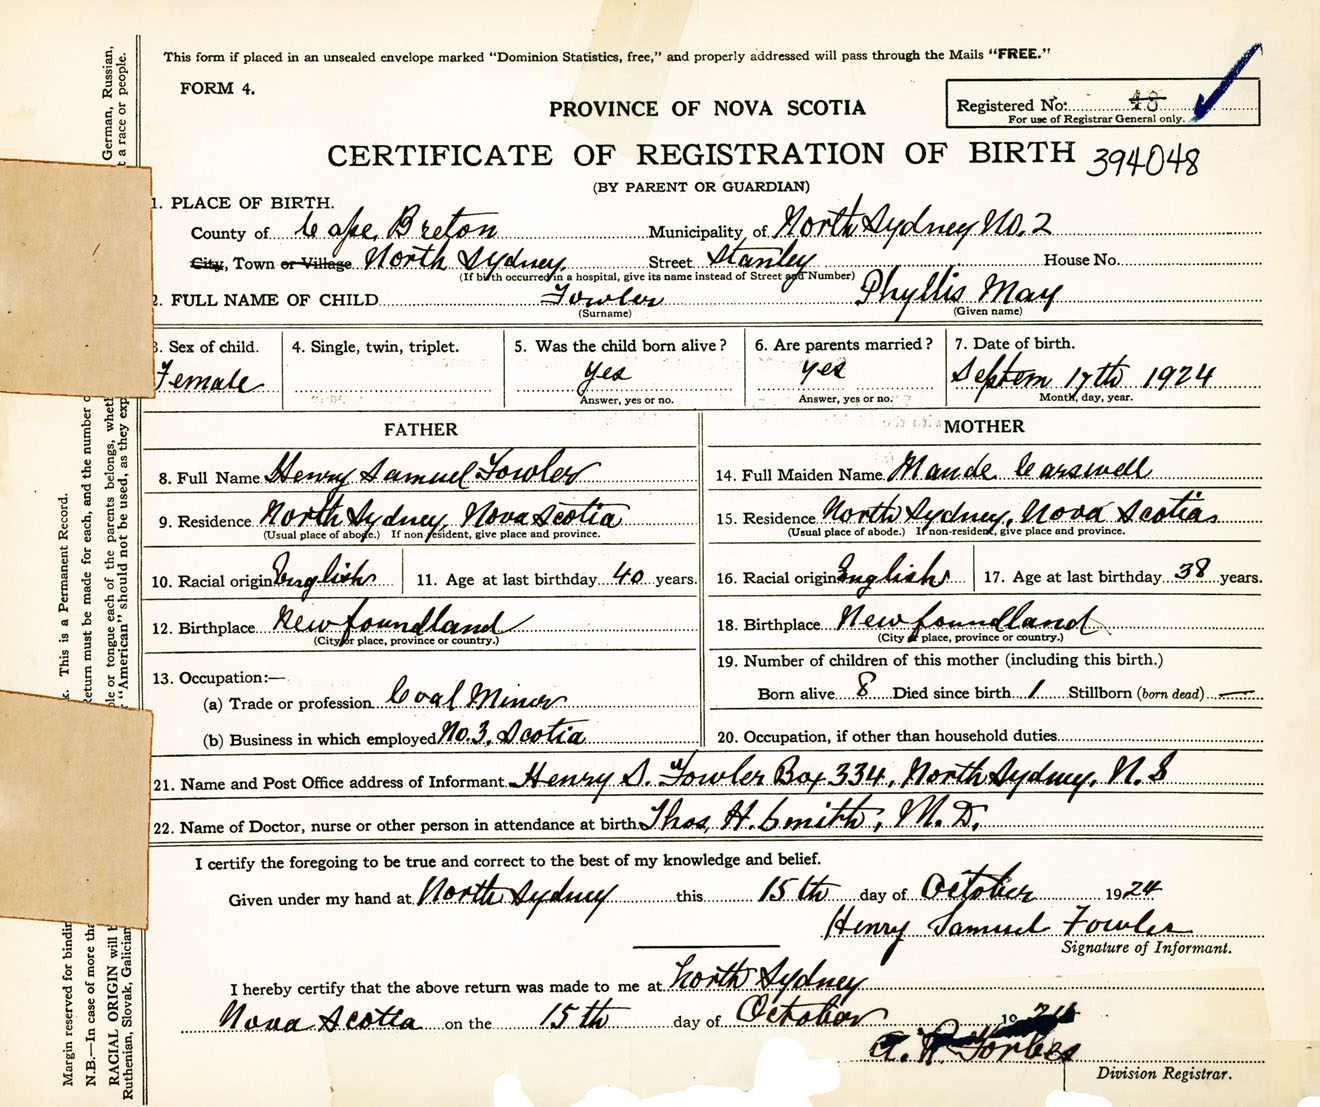 This form if placed in an unsealed envelope marked "Dominion Statistics, free," and properly addressed will pass through the Mails "FREE."
FORM 4.
PROVINCE OF NOVA SCOTIA
Registered No: 48
For use of Registrar General only.
CERTIFICATE OF REGISTRATION OF BIRTH 394048
(BY PARENT OR GUARDIAN)
1. PLACE OF BIRTH.
County of Cape Breton Municipality of North Sydney No. 2
City, Town or Village North Sydney Street Stanley House No.
(If birth occurred in a hospital, give its name instead of Street and Number)
2. FULL NAME OF CHILD Fowler Phyllis May
(Surname) (Given name)
3. Sex of child. 4. Single, twin, triplet. 5. Was the child born alive? 6. Are parents married? 7. Date of birth.
Female yes yes Septem 17th 1924
Answer, yes or no. Answer, yes or no. Month, day, year.
FATHER MOTHER
8. Full Name Henry Samuel Fowler 14. Full Maiden Name Maude Carswell
9. Residence North Sydney, Nova Scotia 15. Residence North Sydney, Nova Scotia
(Usual place of abode.) If non resident, give place and province. (Usual place of abode.) If non-resident, give place and province.
10. Racial origin English 11. Age at last birthday 40 years. 16. Racial origin English 17. Age at last birthday 38 years.
12. Birthplace Newfoundland 18. Birthplace Newfoundland
(City or place, province or country.) (City or place, province or country.)
13. Occupation:— 19. Number of children of this mother (including this birth.)
(a) Trade or profession Coal Miner Born alive 8 Died since birth 1 Stillborn (born dead) —
(b) Business in which employed No. 3, Scotia 20. Occupation, if other than household duties
21. Name and Post Office address of Informant Henry S. Fowler Box 334, North Sydney, N. S
22. Name of Doctor, nurse or other person in attendance at birth Thos. H. Smith, M. D.
I certify the foregoing to be true and correct to the best of my knowledge and belief.
Given under my hand at North Sydney this 15th day of October 1924
Henry Samuel Fowler
Signature of Informant.
I hereby certify that the above return was made to me at North Sydney
Nova Scotia on the 15th day of October 19 24
A. R. Forbes
Division Registrar.
Margin reserved for bindin k. This is a Permanent Record.
N.B.—In case of more tha eturn must be made for each, and the number o
RACIAL ORIGIN will b ple or tongue each of the parents belongs, wheth German, Russian,
Ruthenian, Slovak, Galician "American" should not be used, as they exp t a race or people.